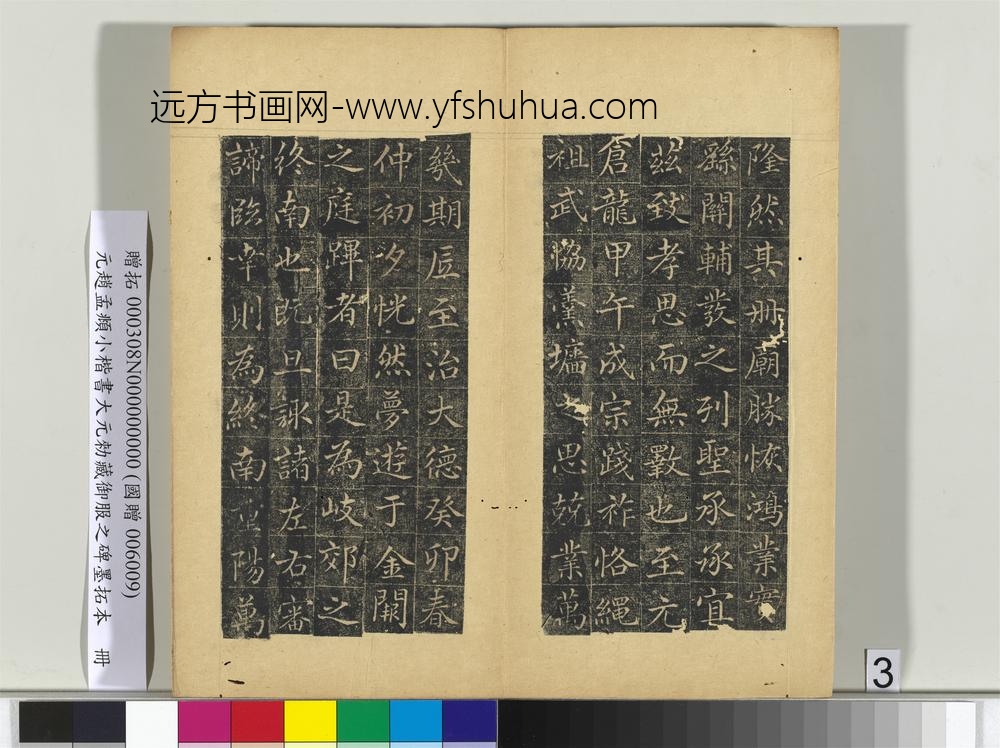 远方书画网-www.yfshuhua.com
隆然其冊廟勝恢鴻業實
繇關輔發之列聖承承宜
茲致孝思而無斁也至元
倉龍甲午成宗踐祚恪繩
祖武恊羹墻之思兢業萬
幾期辰至治大德癸卯春
仲初夕恍然夢遊于金闕
之庭蹕者曰是為岐郊之
終南也既旦諏諸左右審
諦臨幸則為終南重陽萬
贈拓 000308N000000000 (國贈 006009)
元趙孟頫小楷書大元勅藏御服之碑墨拓本 冊
3